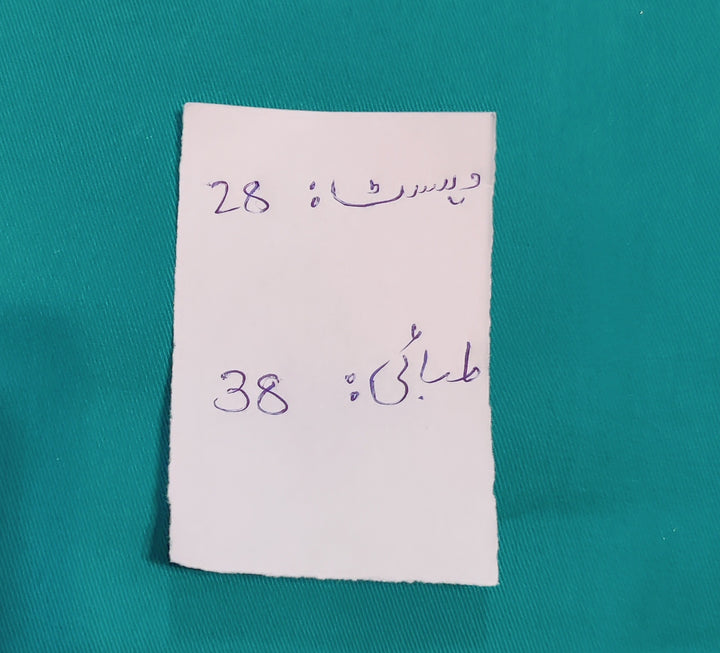 ویسٹ: 28
لمبائی: 38